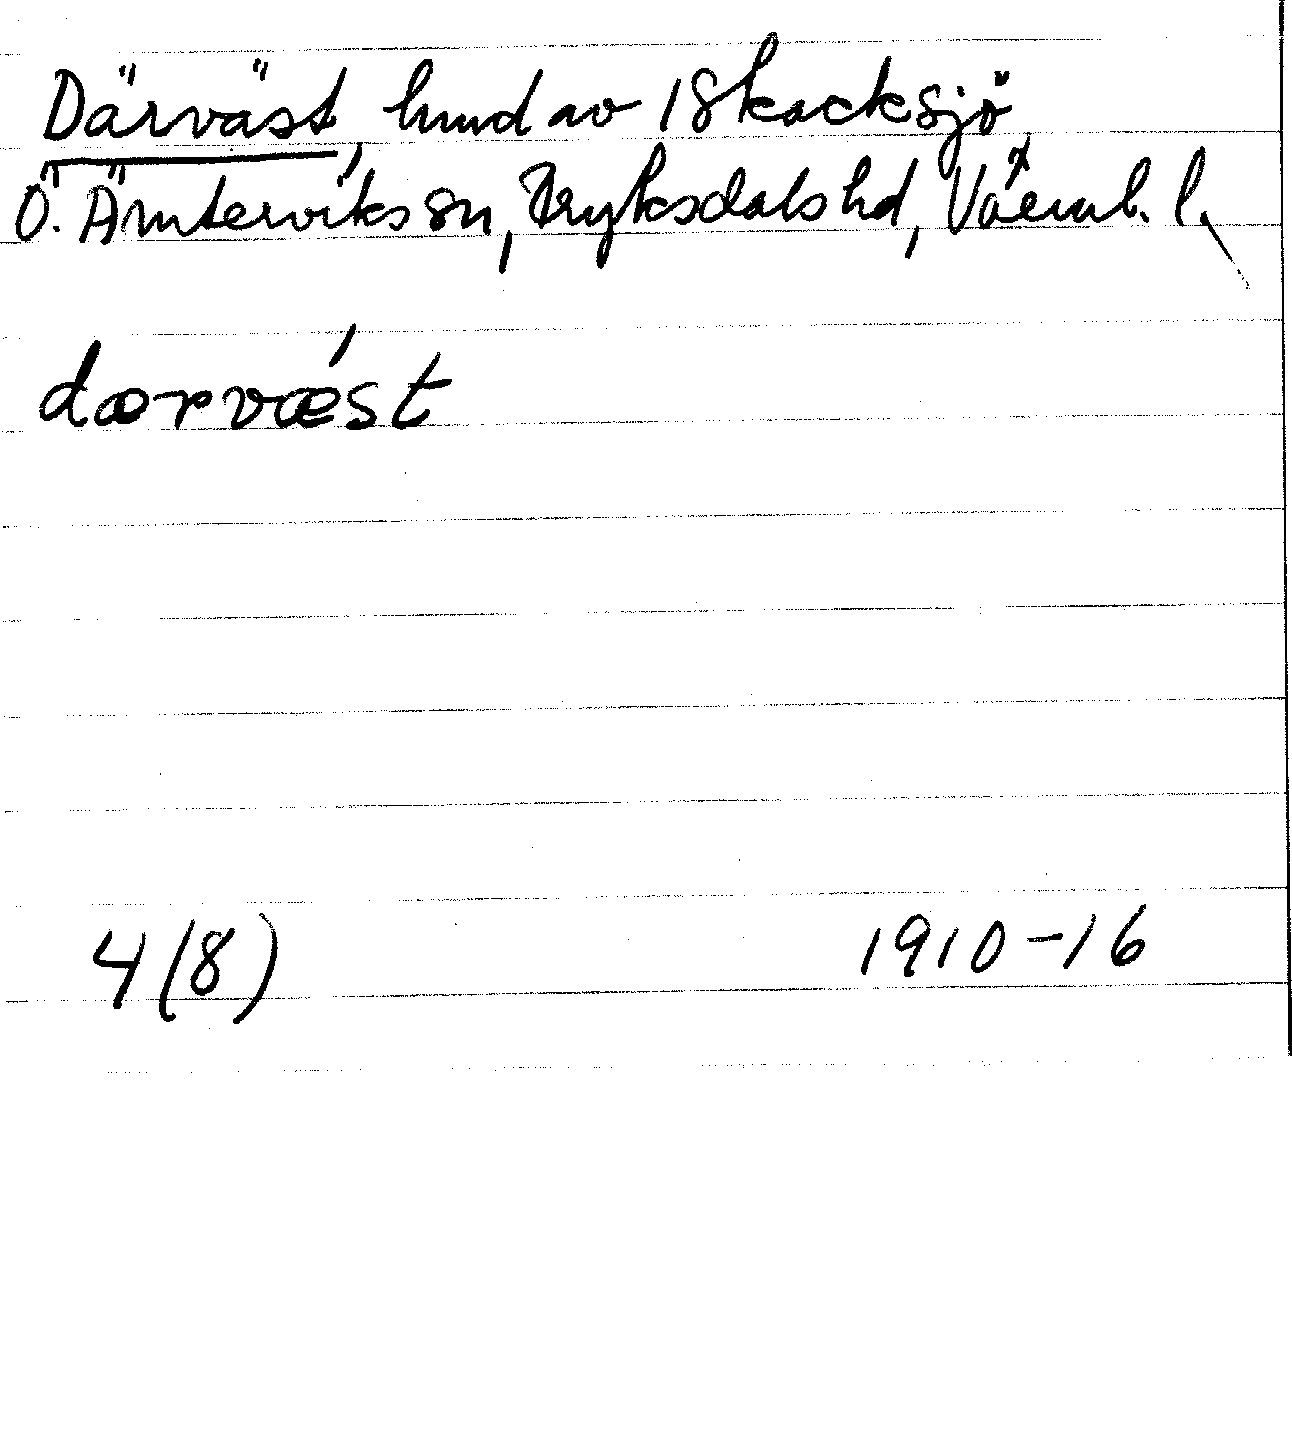 Därväst, hmd av 1 Skacksjö
Ö. Ämterviks sn, Fryksdals hd, Värml. l.
dærvæ´st
4 (8) 1910-16